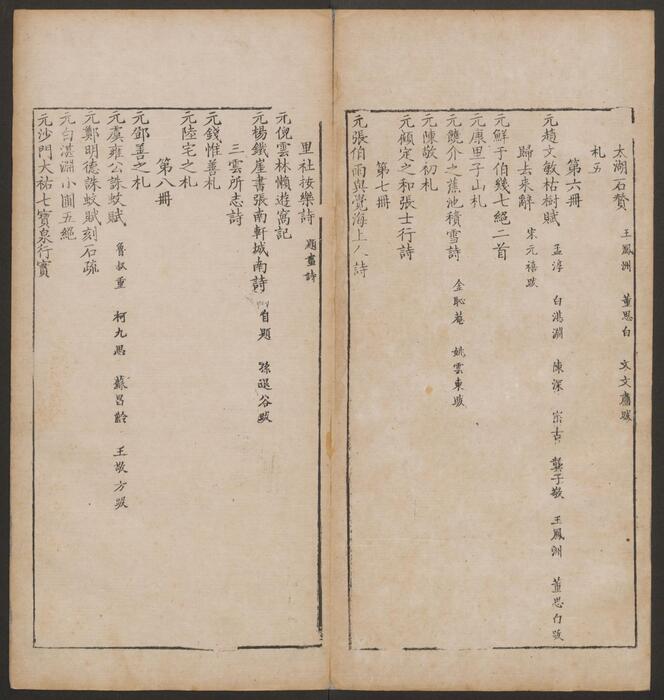 太湖石贊 王鳳洲 董思白 文文肅跋
札五
第六冊
元趙文敏枯樹賦 孟淳 白湛淵 陳深 宗古 龔子敬 王鳳洲 董思白跋
歸去来辭 宋元禧跋
元鮮于伯幾七絕二首
元康里子山札
元饒介之蕉池積雪詩 金恥菴 姚雲東跋
元陳敬初札
元顧定之和張士行詩
第七冊
元張伯雨與覺海上人詩
里社按樂詩 題畫詩
元倪雲林懶遊窩記
元楊鐵崖書張南軒城南詩 自題 孫退谷跋
三雲所志詩
元錢惟善札
元陸宅之札
第八冊
元鄧善之札
元虞雍公誅蚊賦 魯叔重 柯九思 蘇昌齡 王敬方跋
元鄭明德誅蚊賦刻石疏
元白湛淵小圃五絕
元沙門大祐七寶泉行實